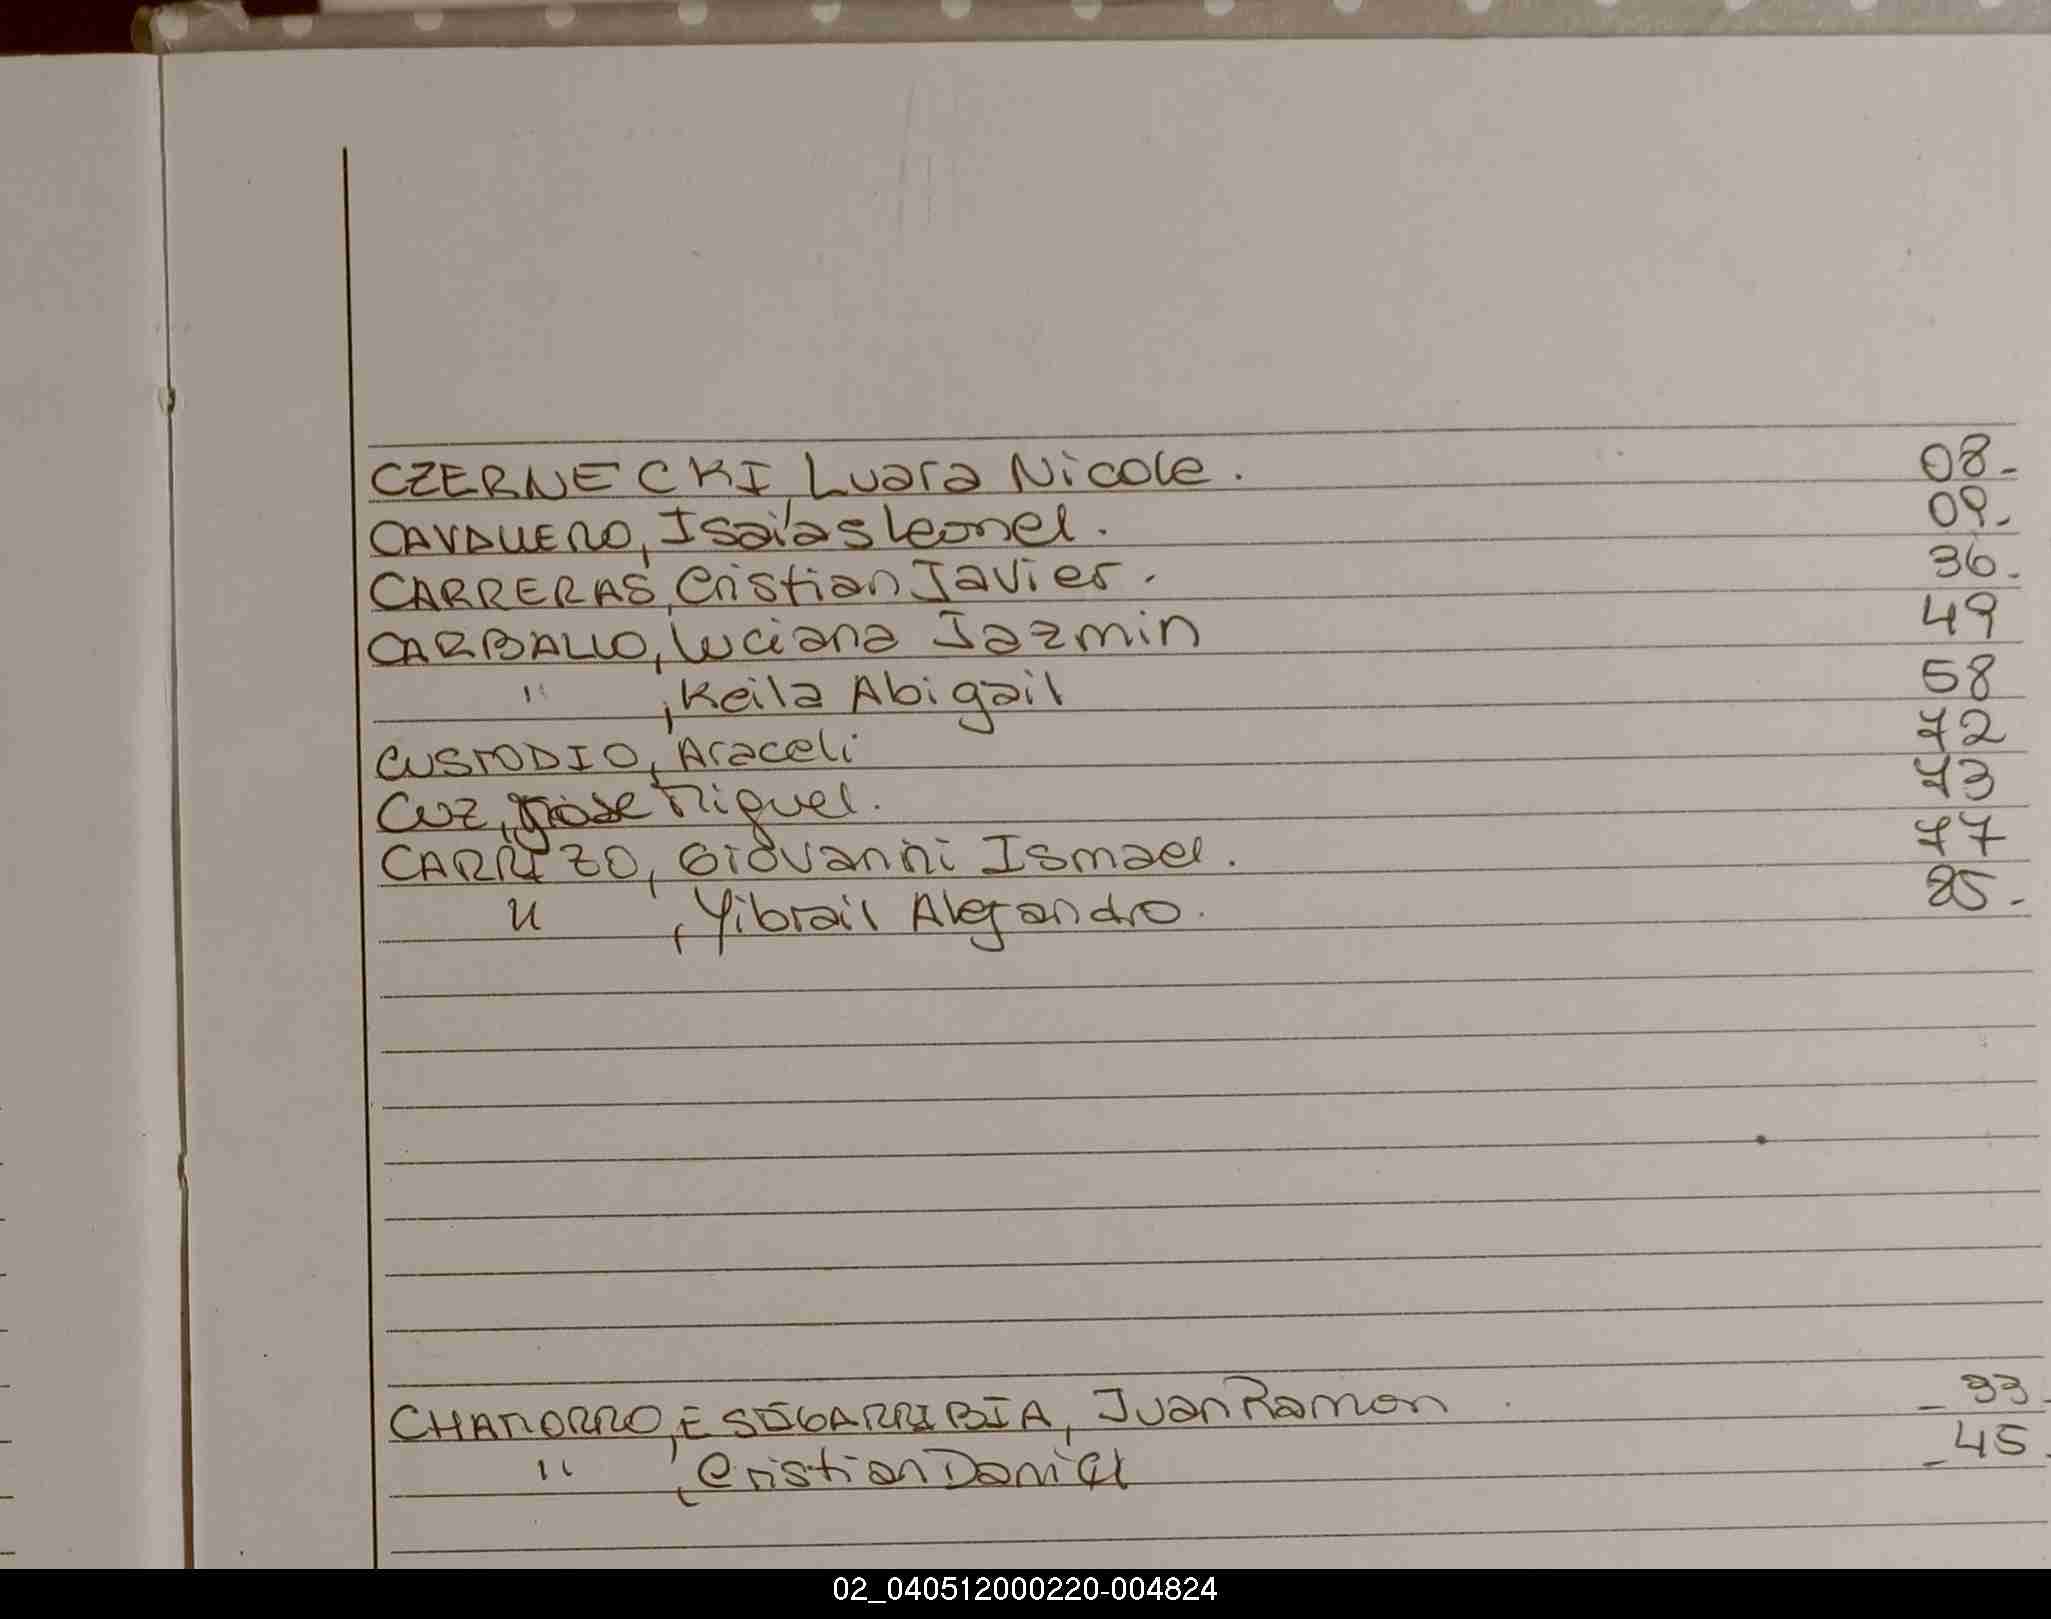 CZERNECKI, Luara Nicole. 08-
CAVALLERO, Isaías Leonel. 09-
CARRERAS, Cristian Javier. 36.
CARBALLO, Luciana Jazmin 49
" , Keila Abigail 58
CUSTODIO, Araceli 72
José Miguel. 73
CARRIZO, Giovanni Ismael. 77
" , Yibrail Alejandro. 85-
CHAMORRO, ESEGARRIBIA, Juan Ramon - 33.
" , Cristian Daniel - 45.
02_040512000220-004824